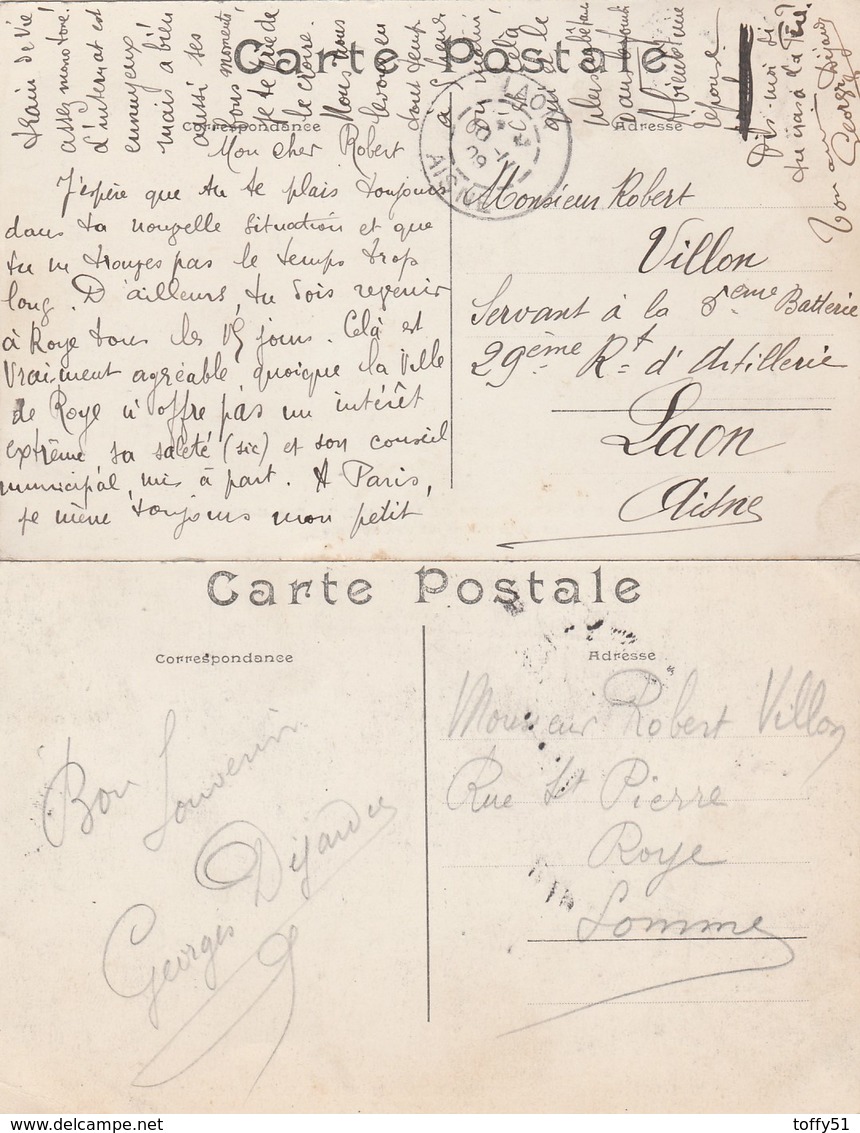 Carte Postale
Correspondance
Adresse
Mon cher Robert
J'espère que tu te plais toujours
dans ta nouvelle situation et que
tu ne trouves pas le temps trop
long. D'ailleurs, tu dois revenir
à Roye tous les 15 jours. Celà est
vraiment agréable quoique la ville
de Roye n'offre pas un intérêt
extrême sa saleté (sic) et son conseil
municipal, mis à part. A Paris,
je mène toujours mon petit
train de vie
assez monotone!
L'internat est
ennuyeux
mais a bien
aussi ses
bons moments
je te prie de
le croire.
Nous nous
levons en
tout temps
à heures
du matin
cela
qui
plus embêtant
Dans le fond
A bientôt une
réponse
Dis-moi si
tu vas à la Fère?
Ton ami
Georges
LAON
AISNE
Monsieur Robert
Villon
Servant à la 5ème Batterie
29ème Rt d'Artillerie
Laon
Aisne
Carte Postale
Correspondance
Adresse
Bon Souvenir
Georges
Monsieur Robert Villon
Rue St Pierre
Roye
Somme
toffy51